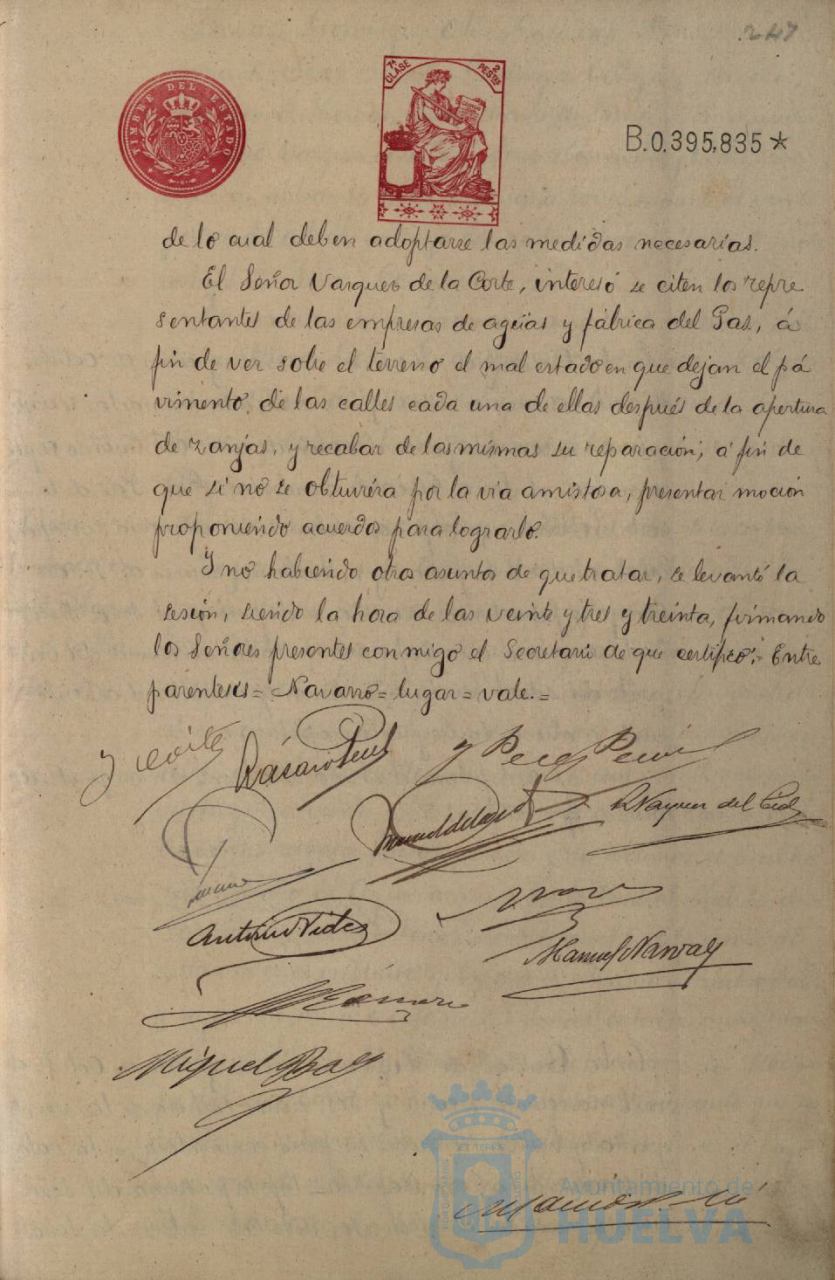 247
TIMBRE DEL ESTADO
7ª CLASE
2 PESTAS
B.0.395,835*
de lo cual deben adoptarse las medidas necesarias.
El Señor Vasquez de la Corte, interesó se citen los repre
sentantes de las empresas de aguas y fábrica del Gas, á
fin de ver sobre el terreno el mal estado en que dejan el pá
vimento, de las calles cada una de ellas después de la apertura
de zanjas, y recabar de las mismas su reparación; á fin de
que si no se obtuviéra por la via amistosa, presentar moción
proponiendo acuerdos para lograrlo.
Y no habiendo otros asuntos de que tratar, se levantó la
sesión, siendo la hora de las veinte y tres y treinta, firmando
los Señores presentes conmigo el Secretario de que certifico.- Entre
parentesis = Navarro = lugar = vale. =
Antonio Vides
Manuel Narvaez
Miguel
Ayuntamiento de
HUELVA